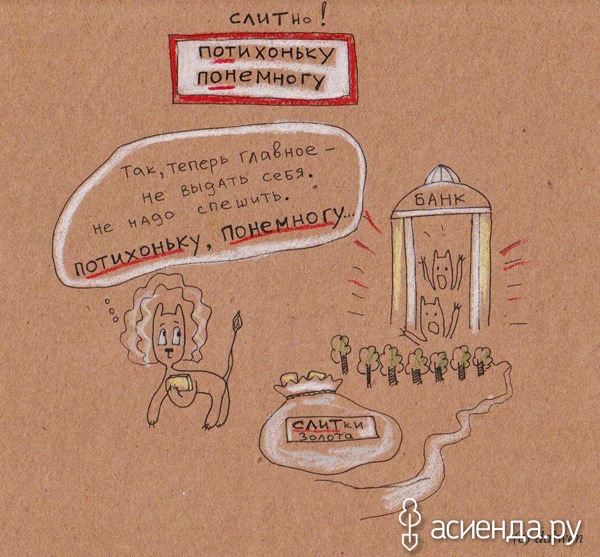 слитно!
потихоньку
понемногу
Так, теперь главное –
не выдать себя.
не надо спешить.
потихоньку, понемногу...
БАНК
слитки
золота
асиенда.ру